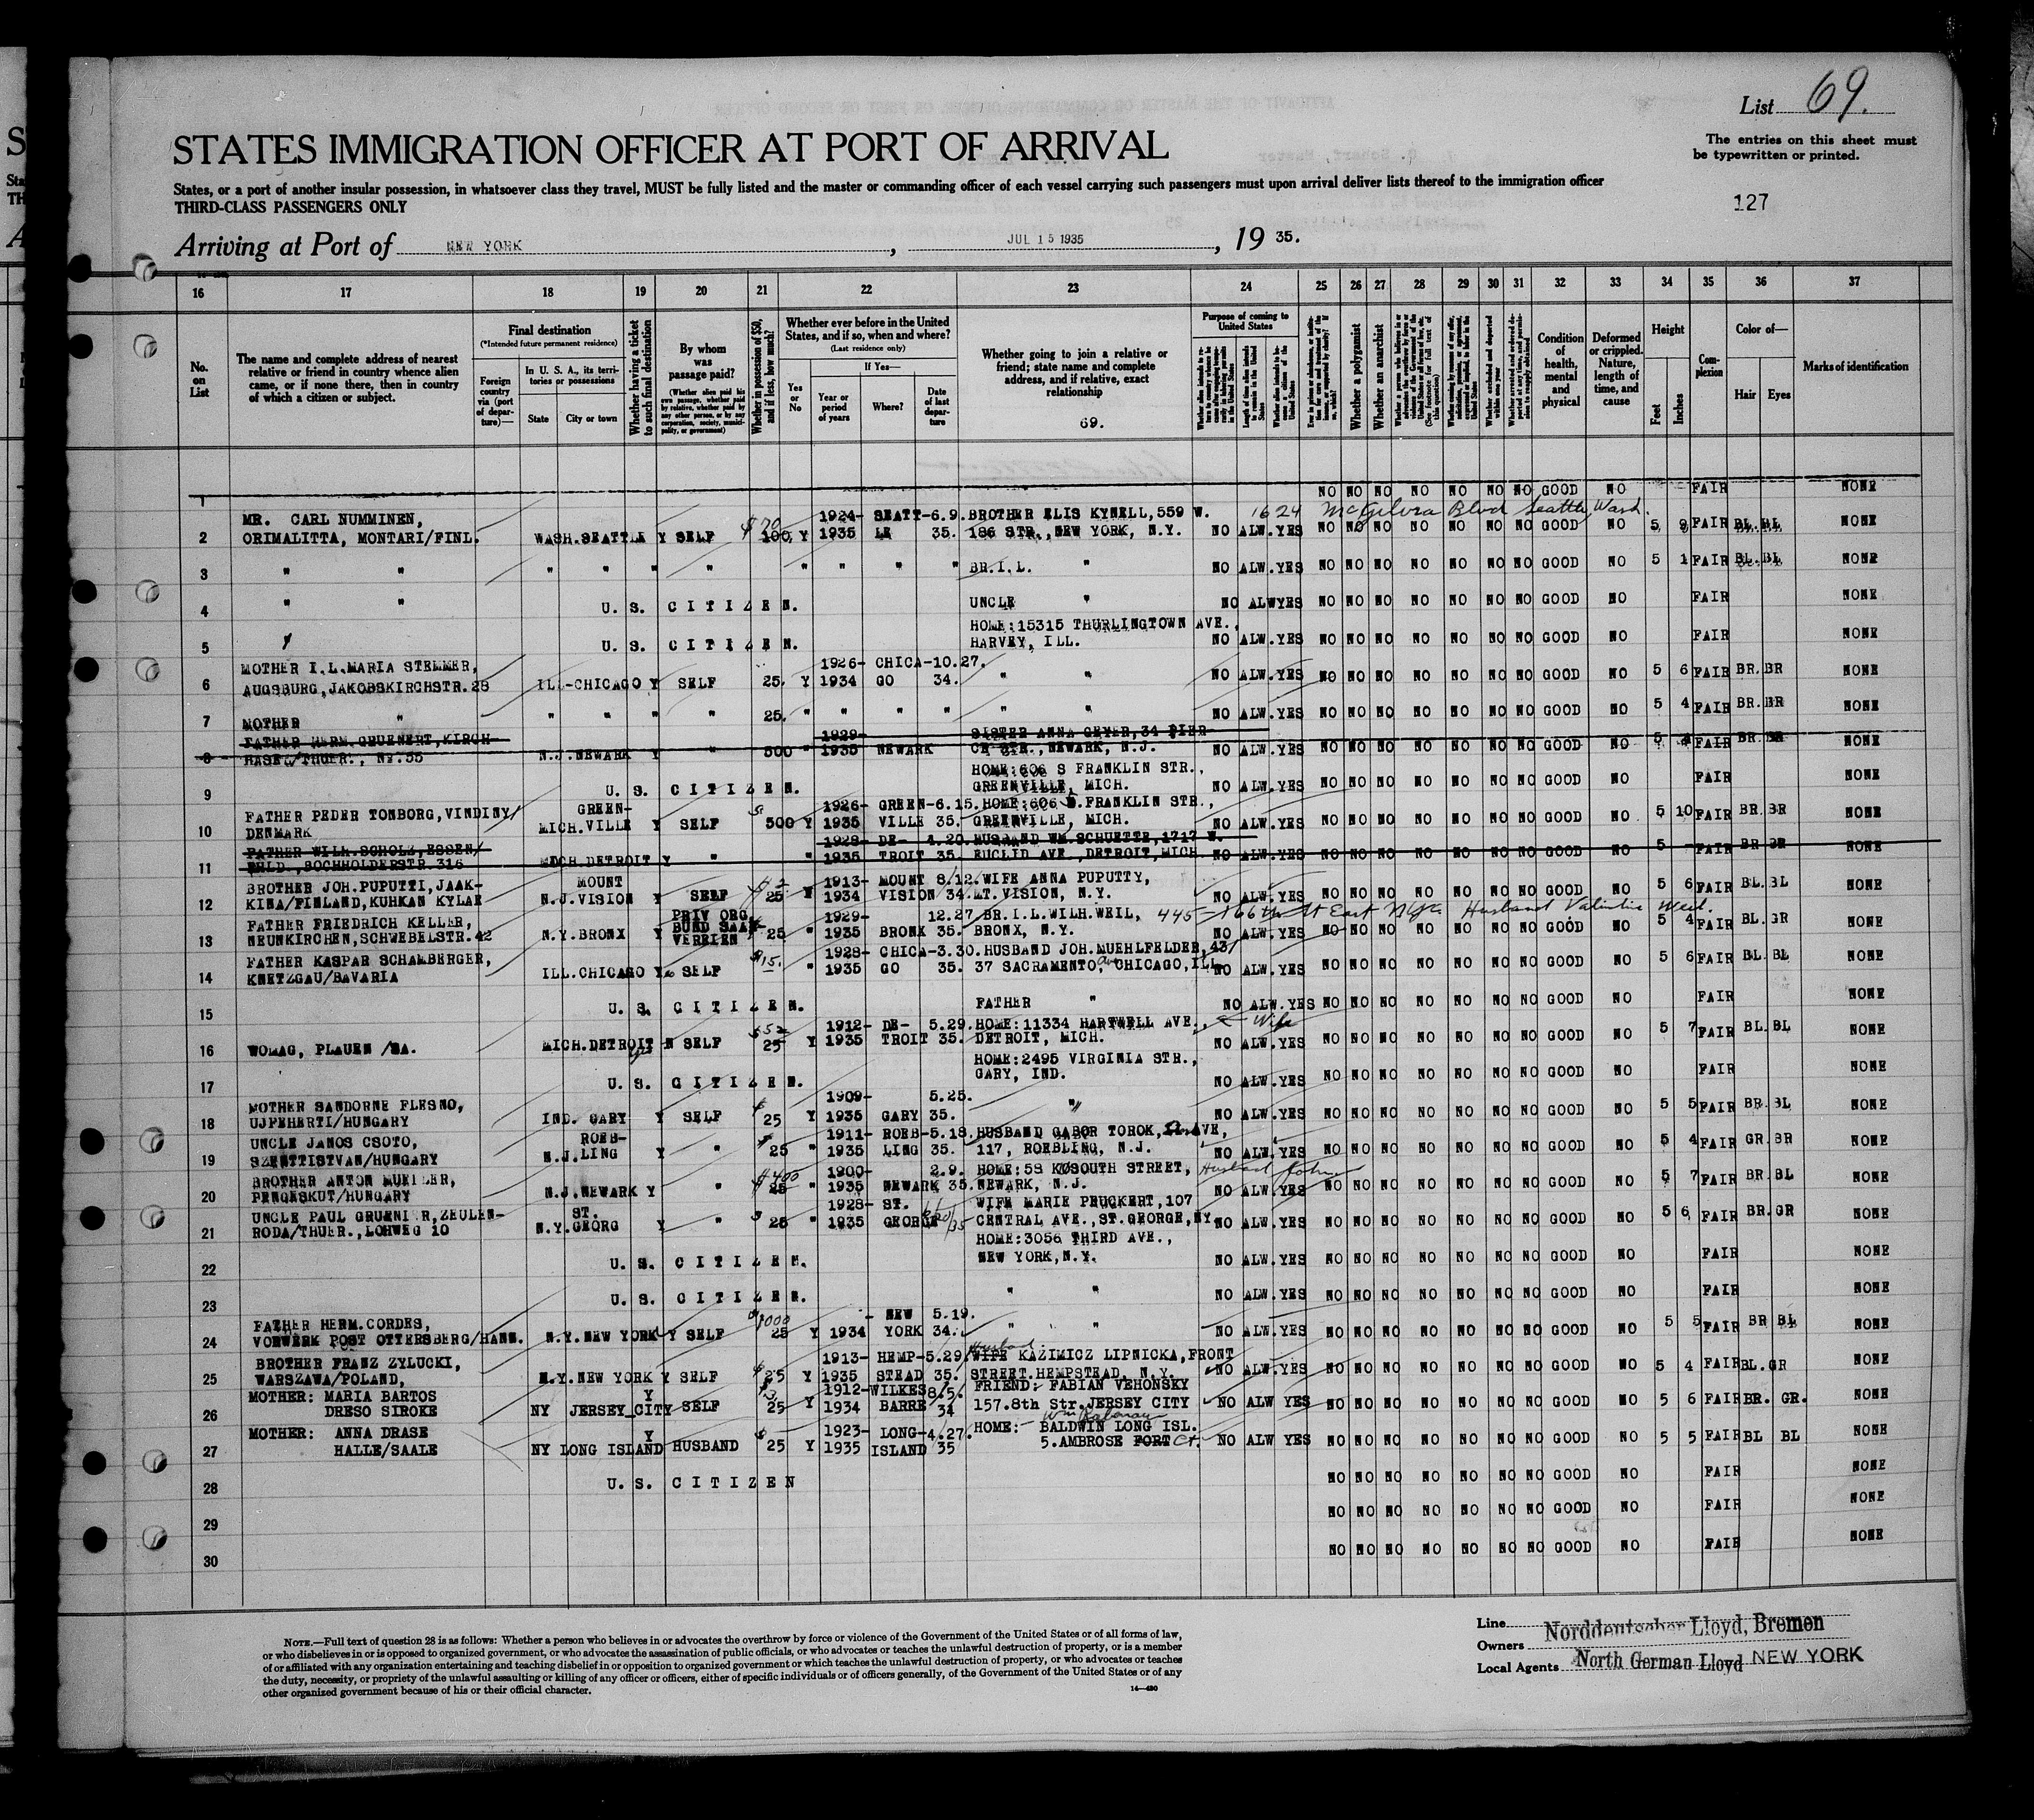 List 69.
STATES IMMIGRATION OFFICER AT PORT OF ARRIVAL
The entries on this sheet must
be typewritten or printed.
States, or a port of another insular possession, in whatsoever class they travel, MUST be fully listed and the master or commanding officer of each vessel carrying such passengers must upon arrival deliver lists thereof to the immigration officer
THIRD-CLASS PASSENGERS ONLY
127
Arriving at Port of NEW YORK, JUL 15 1935, 19 35.
16 17 18 19 20 21 22 23 24 25 26 27 28 29 30 31 32 33 34 35 36 37
No. on List
The name and complete address of nearest relative or friend in country whence alien came, or if none there, then in country of which a citizen or subject.
Final destination
(*Intended future permanent residence)
Foreign country via (port of departure)—
In U. S. A., its territories or possessions
State City or town
Whether having a ticket to such final destination
By whom was passage paid?
(Whether alien paid his own passage, whether paid by relative, whether paid by any other person, or by any corporation, society, municipality, or government)
Whether in possession of $50, and if less, how much?
Whether ever before in the United States, and if so, when and where?
(Last residence only)
Yes or No
If Yes—
Year or period of years Where? Date of last departure
Whether going to join a relative or friend; state name and complete address, and if relative, exact relationship
69.
Purpose of coming to United States
Whether a polygamist
Whether an anarchist
Condition of health, mental and physical
Deformed or crippled. Nature, length of time, and cause
Height
Feet Inches
Complexion
Color of—
Hair Eyes
Marks of identification
1 NO NO NO NO NO NO NO GOOD NO FAIR NONE
MR. CARL NUMMINEN, $70 1924- SEATT-6.9. BROTHER ELIS KYNELL, 559 W. 1624 McGilvra Blvd Seattle, Wash.
2 ORIMALITTA, MONTARI/FINL. WASH. SEATTLE Y SELF 100, Y 1935 LE 35. 186 STR., NEW YORK, N.Y. NO ALW. YES NO NO NO NO NO NO NO GOOD NO 5 9 FAIR BL. BL NONE
3 " " " " " " " " " " " BR.I.L. " NO ALW. YES NO NO NO NO NO NO NO GOOD NO 5 1 FAIR BL. BL NONE
4 " " U. S. CITIZEN. UNCLE " NO ALW YES NO NO NO NO NO NO NO GOOD NO FAIR NONE
HOME: 15315 THURLINGTOWN AVE.,
5 U. S. CITIZEN. HARVEY, ILL. NO ALW. YES NO NO NO NO NO NO NO GOOD NO FAIR NONE
MOTHER I.L. MARIA STEMMER, 1926- CHICA-10.27.
6 AUGSBURG, JAKOBSKIRCHSTR. 28 ILL-CHICAGO Y SELF 25. Y 1934 GO 34. " " NO ALW. YES NO NO NO NO NO NO NO GOOD NO 5 6 FAIR BR. BR NONE
7 MOTHER " " " " " 25. " " " " " " NO ALW. YES NO NO NO NO NO NO NO GOOD NO 5 4 FAIR BR. BR NONE
FATHER HERM. GRUENERT, KIRCH- 1929- SISTER ANNA GEYER, 34 PIER-
8 HASEL/THUER., NR. 55 N.J. NEWARK Y " 500 " 1935 NEWARK CE STR., NEWARK, N.J. NO ALW. YES NO NO NO NO NO NO NO GOOD NO 5 4 FAIR BR. BR NONE
HOME: 606 S FRANKLIN STR.,
9 U. S. CITIZEN. GREENVILLE, MICH. NO ALW. YES NO NO NO NO NO NO NO GOOD NO FAIR NONE
FATHER PEDER TONBORG, VINDINY/ GREEN- 1926- GREEN-6.15. HOME: 606 S. FRANKLIN STR.,
10 DENMARK MICH. VILLE Y SELF 500 Y 1935 VILLE 35. GREENVILLE, MICH. NO ALW. YES NO NO NO NO NO NO NO GOOD NO 5 10 FAIR BR. BR NONE
FATHER WILH. SCHOLZ, ESSEN/ 1928- DE- 4.20. HUSBAND WM. SCHUETTE, 1717 W.
11 RHLD., BOCHHOLDERSTR. 316 MICH. DETROIT Y " " 1935 TROIT 35. EUCLID AVE., DETROIT, MICH NO ALW. YES NO NO NO NO NO NO NO GOOD NO 5 FAIR BR BR NONE
BROTHER JOH. PUPUTTI, JAAK- MOUNT 1913- MOUNT 8.12. WIFE ANNA PUPUTTY,
12 KIMA/FINLAND, KUHKAN KYLAE N.J. VISION Y SELF 25 Y 1934 VISION 34. MT. VISION, N.Y. NO ALW. YES NO NO NO NO NO NO NO GOOD NO 5 6 FAIR BL. BL NONE
FATHER FRIEDRICH KELLER, PRIV ORG. BUND SAAR VEREIEN 1929- 12.27. BR.I.L. WILH. WEIL, 445-166th St East N.Y.C. Husband Valentin Weil.
13 NEUNKIRCHEN, SCHWEBELSTR. 42 N.Y. BRONX Y 25 " 1935 BRONX 35. BRONX, N.Y. NO ALW. YES NO NO NO NO NO NO NO GOOD NO 5 4 FAIR BL. GR NONE
FATHER KASPAR SCHAMBERGER, $15. 1928- CHICA-3.30. HUSBAND JOH. MUEHLFELDER, 43/
14 KNETZGAU/BAVARIA ILL. CHICAGO SELF " 1935 GO 35. 37 SACRAMENTO, Ave CHICAGO, ILL NO ALW. YES NO NO NO NO NO NO NO GOOD NO 5 6 FAIR BL. BL NONE
15 U. S. CITIZEN. FATHER " NO ALW. YES NO NO NO NO NO NO NO GOOD NO FAIR NONE
$52 1912- DE- 5.29. HOME: 11334 HARTWELL AVE., Wife
16 WOMAG, PLAUEN /SA. MICH. DETROIT N yes SELF 25 Y 1935 TROIT 35. DETROIT, MICH. NO ALW. YES NO NO NO NO NO NO NO GOOD NO 5 7 FAIR BL. BL NONE
HOME: 2495 VIRGINIA STR.,
17 U. S. CITIZEN. GARY, IND. NO ALW. YES NO NO NO NO NO NO NO GOOD NO FAIR NONE
MOTHER SANDORNE FLESNO, 1909- 5.25.
18 UJPEHERTI/HUNGARY IND. GARY Y SELF 25 Y 1935 GARY 35. " NO ALW. YES NO NO NO NO NO NO NO GOOD NO 5 5 FAIR BR. BL NONE
UNCLE JANOS CSOTO, ROEB- 1911- ROEB-5.18. HUSBAND GABOR TOROK, AVE,
19 SZENTTISTVAN/HUNGARY N.J. LING Y " 25 " 1935 LING 35. 117, ROEBLING, N.J. NO ALW. YES NO NO NO NO NO NO NO GOOD NO 5 4 FAIR GR. BR NONE
BROTHER ANTON MUELLER, $400 1900- 2.9. HOME: 58 KOSOUTH STREET, Husband John
20 PENGESKUT/HUNGARY N.J. NEWARK Y " 25 " 1935 NEWARK 35. NEWARK, N.J. NO ALW. YES NO NO NO NO NO NO NO GOOD NO 5 7 FAIR BR. BL NONE
UNCLE PAUL GRUENLER, ZEULEN- ST. 1928- ST. WIFE MARIE PEUCKERT, 107
21 RODA/THUER., LOHWEG 10 N.Y. GEORG Y " 25 " 1935 GEORGE CENTRAL AVE., ST. GEORGE, NY NO ALW. YES NO NO NO NO NO NO NO GOOD NO 5 6 FAIR BR. GR NONE
HOME: 3056 THIRD AVE.,
22 U. S. CITIZEN. NEW YORK, N.Y. NO ALW. YES NO NO NO NO NO NO NO GOOD NO FAIR NONE
23 U. S. CITIZEN. " " NO ALW. YES NO NO NO NO NO NO NO GOOD NO FAIR NONE
FATHER HERM. CORDES, $1000 - NEW 5.19.
24 VORWERK POST OTTERSBERG/HANN. N.Y. NEW YORK Y SELF 25 Y 1934 YORK 34. " " NO ALW. YES NO NO NO NO NO NO NO GOOD NO 5 5 FAIR BR BL NONE
BROTHER FRANZ ZYLUCKI, 1913- HEMP-5.29. Husband WIFE KAZIMICZ LIPNICKA, FRONT
25 WARSZAWA/POLAND, N.Y. NEW YORK Y SELF 25 Y 1935 STEAD 35. STREET. HEMPSTEAD, N.Y. NO ALW. YES NO NO NO NO NO NO NO GOOD NO 5 4 FAIR BL. GR NONE
MOTHER: MARIA BARTOS Y 1912- WILKES 8.5. FRIEND: FABIAN VEHONSKY
26 DRESO SIROKE NY JERSEY CITY SELF 25 Y 1934 BARRE 34 157.8th Str. JERSEY CITY NO ALW YES NO NO NO NO NO NO NO GOOD NO 5 6 FAIR BR. GR. NONE
MOTHER: ANNA DRASE Y 1923- LONG- 4.27. HOME: BALDWIN LONG ISL.
27 HALLE/SAALE NY LONG ISLAND HUSBAND 25 Y 1935 ISLAND 35 5. AMBROSE PORT Ct. NO ALW YES NO NO NO NO NO NO NO GOOD NO 5 5 FAIR BL BL NONE
28 U. S. CITIZEN NO NO NO NO NO NO NO GOOD NO FAIR NONE
29 NO NO NO NO NO NO NO GOOD NO FAIR NONE
30 NO NO NO NO NO NO NO GOOD NO FAIR NONE
NOTE.—Full text of question 28 is as follows: Whether a person who believes in or advocates the overthrow by force or violence of the Government of the United States or of all forms of law,
or who disbelieves in or is opposed to organized government, or who advocates the assassination of public officials, or who advocates or teaches the unlawful destruction of property, or is a member
of or affiliated with any organization entertaining and teaching disbelief in or opposition to organized government or which teaches the unlawful destruction of property, or who advocates or teaches
the duty, necessity, or propriety of the unlawful assaulting or killing of any officer or officers, either of specific individuals or of officers generally, of the Government of the United States or of any
other organized government because of his or their official character.
14—430
Line Norddeutscher Lloyd, Bremen
Owners
Local Agents North German Lloyd NEW YORK